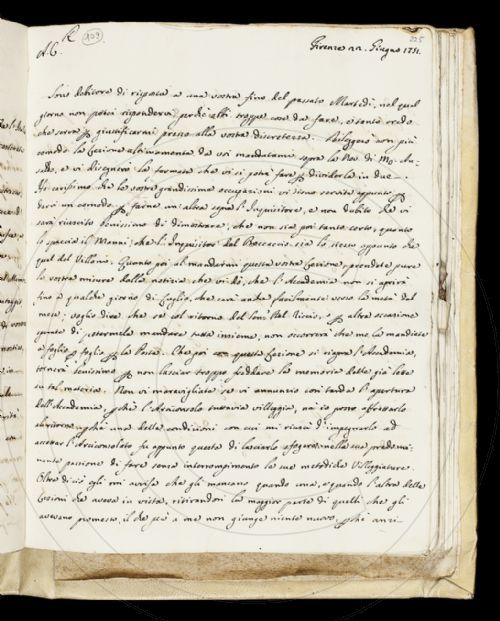 R 109 225
A. C. Firenze 22. Giugno 1751.
Sono debitore di risposta a una vostra fino del passato Martedì, nel qual
giorno non potei rispondervi, perchè ebbi troppe cose da fare, e tanto credo
che serva per giustificarmi presso alla vostra discretezza. Rileggerò con più
comodo la Lezione ultimamente da voi mandatami sopra la Nov. di
e vi disegnerò la fermata che vi si potrà fare per dividerla in due.
che le vostre grandissime occupazioni vi siano servite appunto per
un comodo per farne un'altra sopra l'Inquisitore, e non dubito che vi
sarà riuscito benissimo di dimostrare, che non sia poi tanto certo, quanto
lo spaccia il Manni, che l'Inquisitor del Boccaccio sia lo stesso appunto che
quel del Villani. Quanto poi al mandarmi questa vostra Lezione, prendete pure
le vostre misure dalla notizia che vi do, che l'Accademia non si aprirà
fino a qualche giorno di Luglio, che sarà anche facilmente verso la metà del
mese; voglio dire che se col ritorno del Del Riccio, o per altra occasione
sperate di potermela mandare tutta insieme, non occorrerà che me la mandiate
a foglio per foglio per la Posta. Che poi con questa Lezione si riapra l'Accademia,
tornerà benissimo per non lasciar troppo freddare la memoria delle già lette
in tal materia. Non vi maravigliate se vi annunzio così tarda l'apertura
dell'Accademia, perchè l'Arciconsolo tuttavia villeggia, nè io posso affrettarlo
perchè una delle condizioni con cui mi riuscì d'impegnarlo ad
accettar l'Arciconsolato fu appunto questa di lasciarlo nella sua predomi-
nante passione di fare senza interrompimento le sue metodiche Villeggiature.
Oltre di ciò egli mi avvisa che gli mancano quando una, e quando l'altra delle
Lezioni che aveva in vista, ritirandosi la maggior parte di quelli che gli
avevano promesso, il che a me non giunge niente nuovo, perchè anzi-